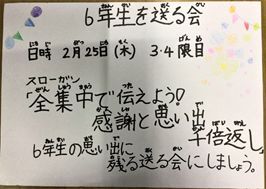 6年生を送る会
日時 2月25日(木) 3・4限目
スローガン
「全集中で伝えよう!
感謝と思い出
千倍返し」
6年生の思い出に
残る送る会にしましょう。